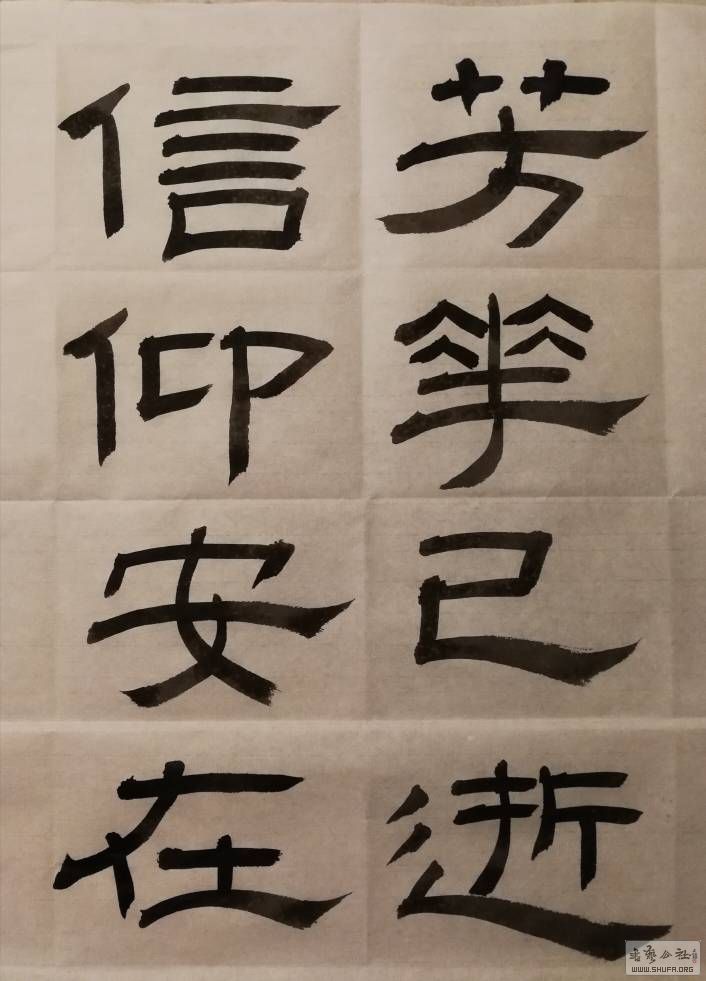 芳華已逝
信仰安在
書藝公社
WWW.SHUFA.ORG